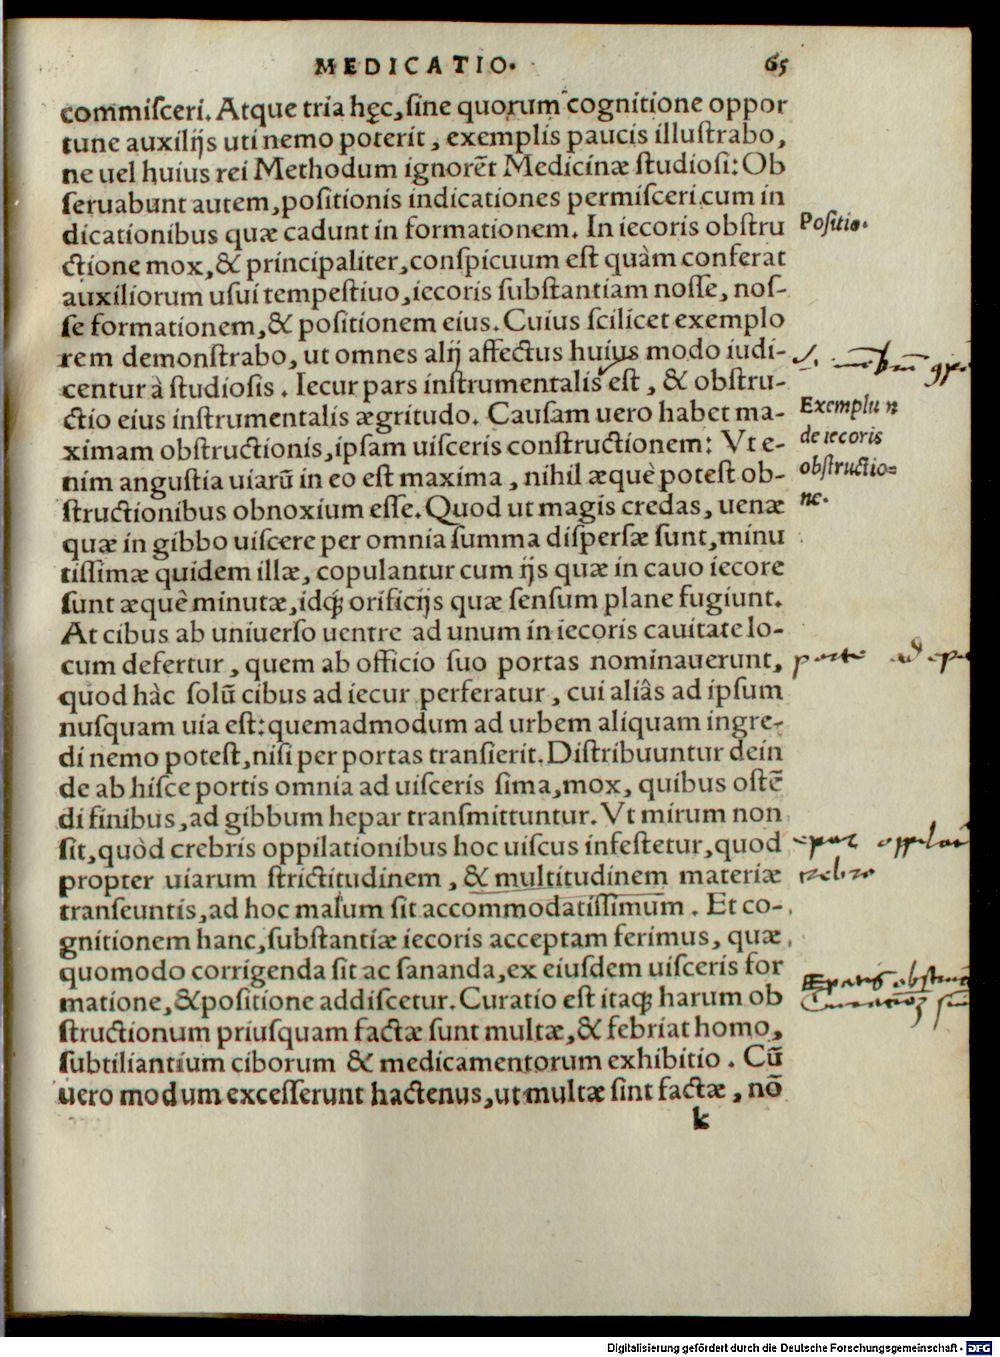 MEDICATIO. 65
commiſceri. Atque tria hęc, ſine quorum cognitione oppor
tune auxilijs uti nemo poterit, exemplis paucis illuſtrabo,
ne uel huius rei Methodum ignorẽt Medicinæ ſtudioſi: Ob
ſeruabunt autem, poſitionis indicationes permiſceri cum in
dicationibus quæ cadunt in formationem. In iecoris obſtru
Poſitio.
ctione mox, & principaliter, conſpicuum eſt quàm conferat
auxiliorum uſui tempeſtiuo, iecoris ſubſtantiam noſſe, noſ-
ſe formationem, & poſitionem eius. Cuius ſcilicet exemplo
rem demonſtrabo, ut omnes alij affectus huius modo iudi-
centur à ſtudioſis. Iecur pars inſtrumentalis eſt, & obſtru-
ctio eius inſtrumentalis ægritudo. Cauſam uero habet ma-
Exemplũ
ximam obſtructionis, ipſam uiſceris conſtructionem: Vt e-
de iecoris
nim anguſtia uiarũ in eo eſt maxima, nihil æquè poteſt ob-
obſtructio-
ſtructionibus obnoxium eſſe. Quod ut magis credas, uenæ
ne.
quæ in gibbo uiſcere per omnia ſumma diſperſæ ſunt, minu
tiſſimæ quidem illæ, copulantur cum ijs quæ in cauo iecore
ſunt æquè minutæ, idq́; orificijs quæ ſenſum plane fugiunt.
At cibus ab uniuerſo uentre ad unum in iecoris cauitate lo-
cum defertur, quem ab officio ſuo portas nominauerunt,
porte ad epa
quòd hàc ſolũ cibus ad iecur perferatur, cui aliâs ad ipſum
nuſquam uia eſt: quemadmodum ad urbem aliquam ingre-
di nemo poteſt, niſi per portas tranſierit. Diſtribuuntur dein
de ab hiſce portis omnia ad uiſceris ſima, mox, quibus oſtẽ
di finibus, ad gibbum hepar tranſmittuntur. Vt mirum non
ſit, quòd crebris oppilationibus hoc uiſcus infeſtetur, quod
epar
propter uiarum ſtrictitudinem, & multitudinem materiæ
tranſeuntis, ad hoc malum ſit accommodatiſſimum. Et co-
gnitionem hanc, ſubſtantiæ iecoris acceptam ferimus, quæ
quomodo corrigenda ſit ac ſananda, ex eiuſdem uiſceris for
Epatis
matione, & poſitione addiſcetur. Curatio eſt itaq; harum ob
ſtructionum priuſquam factæ ſunt multæ, & febriat homo,
ſubtiliantium ciborum & medicamentorum exhibitio. Cũ
uero modum exceſſerunt hactenus, ut multæ ſint factæ, nõ
k
Digitalisierung gefördert durch die Deutsche Forschungsgemeinschaft - DFG